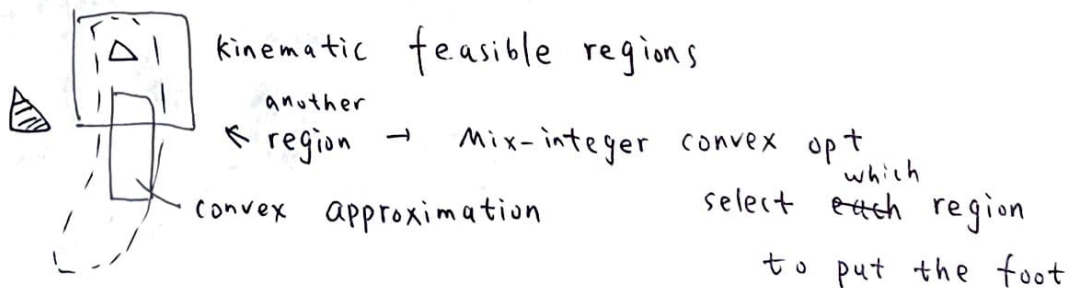 kinematic feasible regions
another
↖ region → Mix-integer convex opt
which
convex approximation select each region
to put the foot